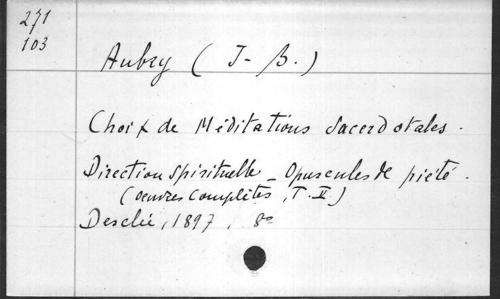 271
103
Aubry (J-B.)
Choix de Méditations Sacerdotales.
Direction Spirituelle - Opuscules de piété.
(oeuvres complètes, T. II)
Desclée, 1897, 8º